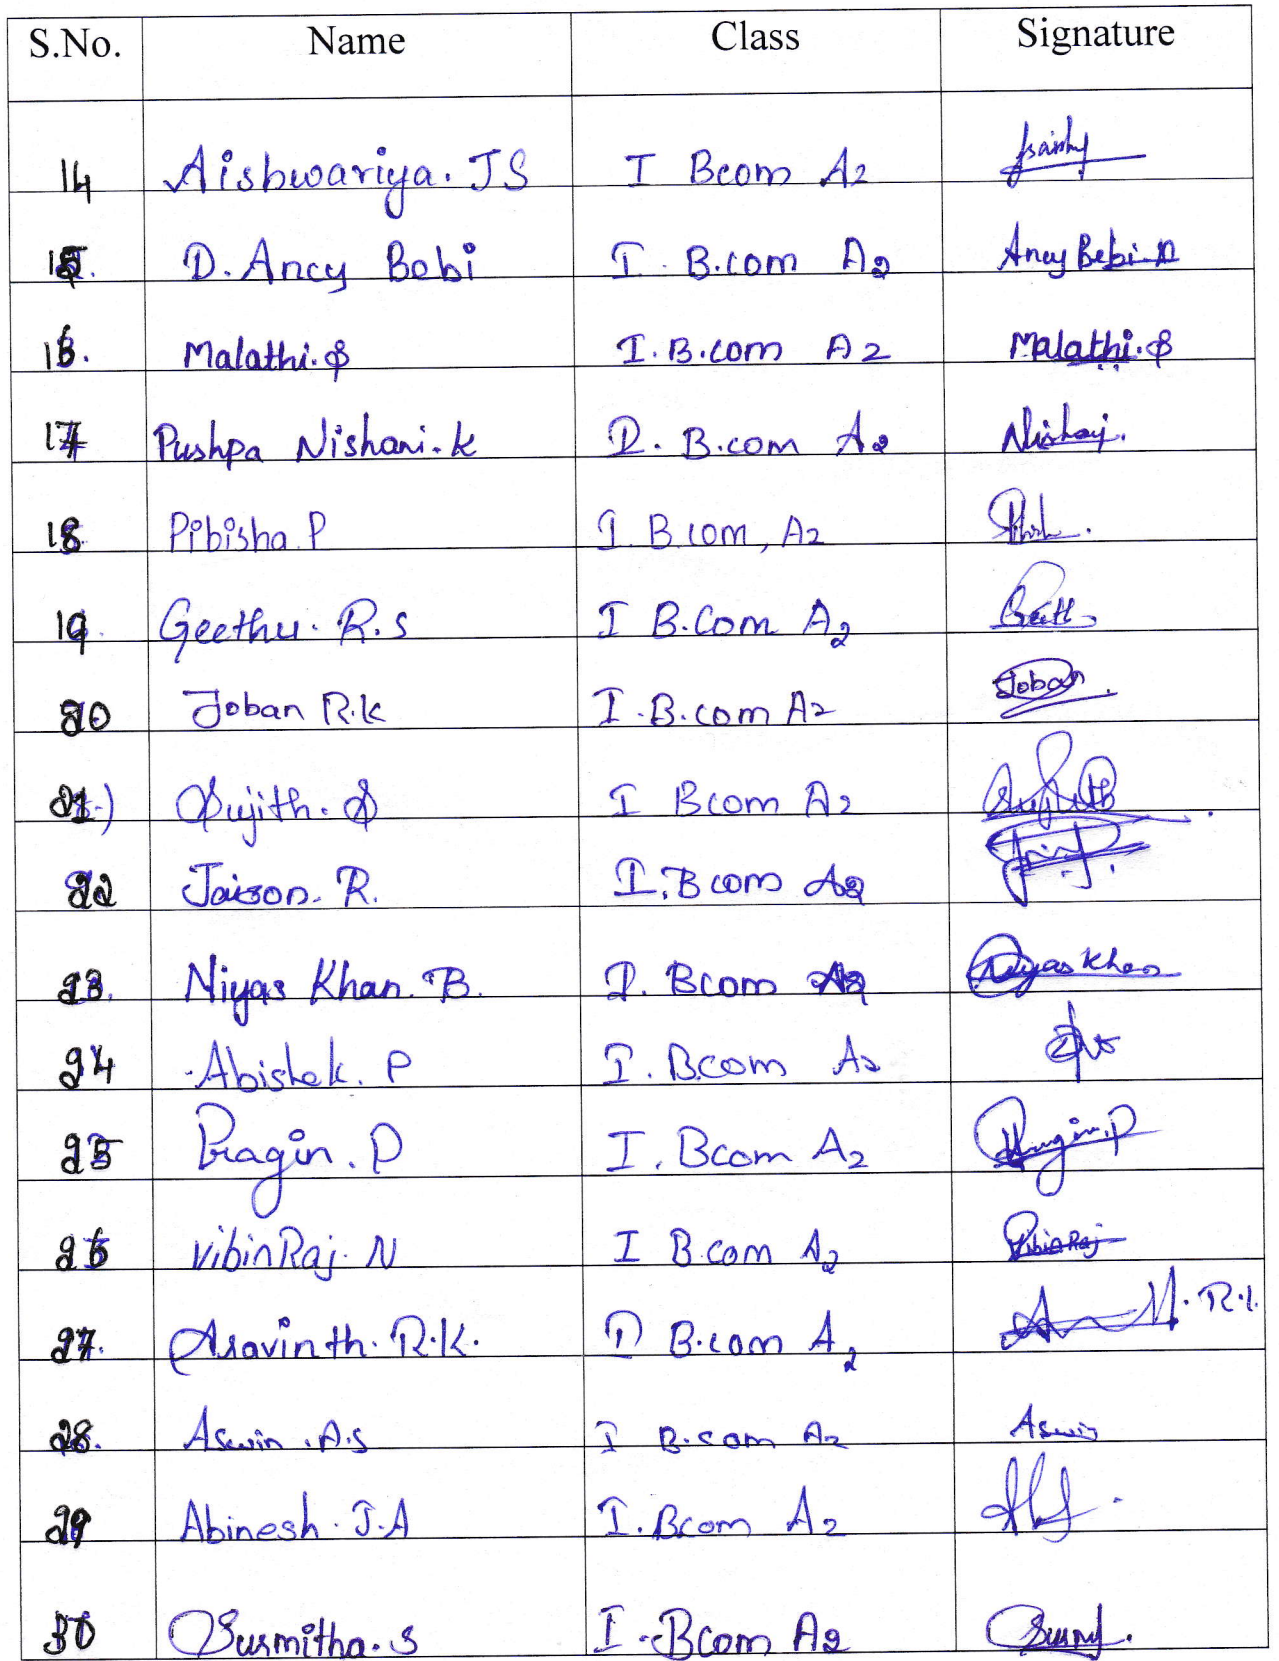 S.No. Name Class Signature
14 Aishwariya. JS I Bcom A2
15. D. Ancy Bobi I. B.com A2 Ancy Bebi.D
16. Malathi.S I.B.com A2 Malathi.S
17 Pushpa Nishani.K I. B.com A2
18 Pibisha P I. B com, A2
19. Geethu. R.S I B.Com A2
20 Joban R.K I.B.com A2 Joban
21) Sujith. S I Bcom A2 Sujith
22 Jaison. R. I. Bcom A2
23. Niyas Khan. B. I. Bcom A2 Niyas Khan
24 Abishek. P I. B.com A2
25 Pragin. P I. Bcom A2 Pragin.P
26 Vibin Raj. N I B.com A2 Vibin Raj
27. Aravinth. R.K. I B.com A2
28. Aswin .A.S I B.com A2 Aswin
29 Abinesh. J.A I. Bcom A2
30 Susmitha. S I. Bcom A2